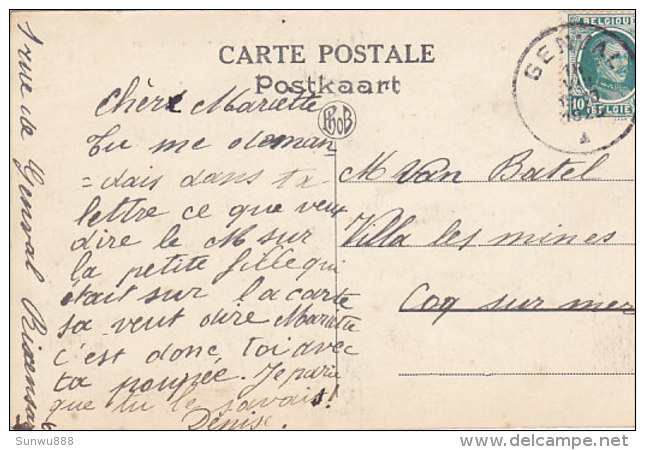 CARTE POSTALE
Postkaart
BELGIQUE
10
BELGIE
GENVAL
PhoB
1 rue de Genval Rixensart
Chère Mariette
Tu me deman
=dais dans ta
lettre ce que veut
dire le M sur
la petite fille qui
était sur la carte
sa veut dire Mariette
c'est donc toi avec
ta poupée. Je parie
que tu le savais!
Denise.
M Van Batel
Villa les mines
Coq sur mer
Sunwu888
delcampe.net